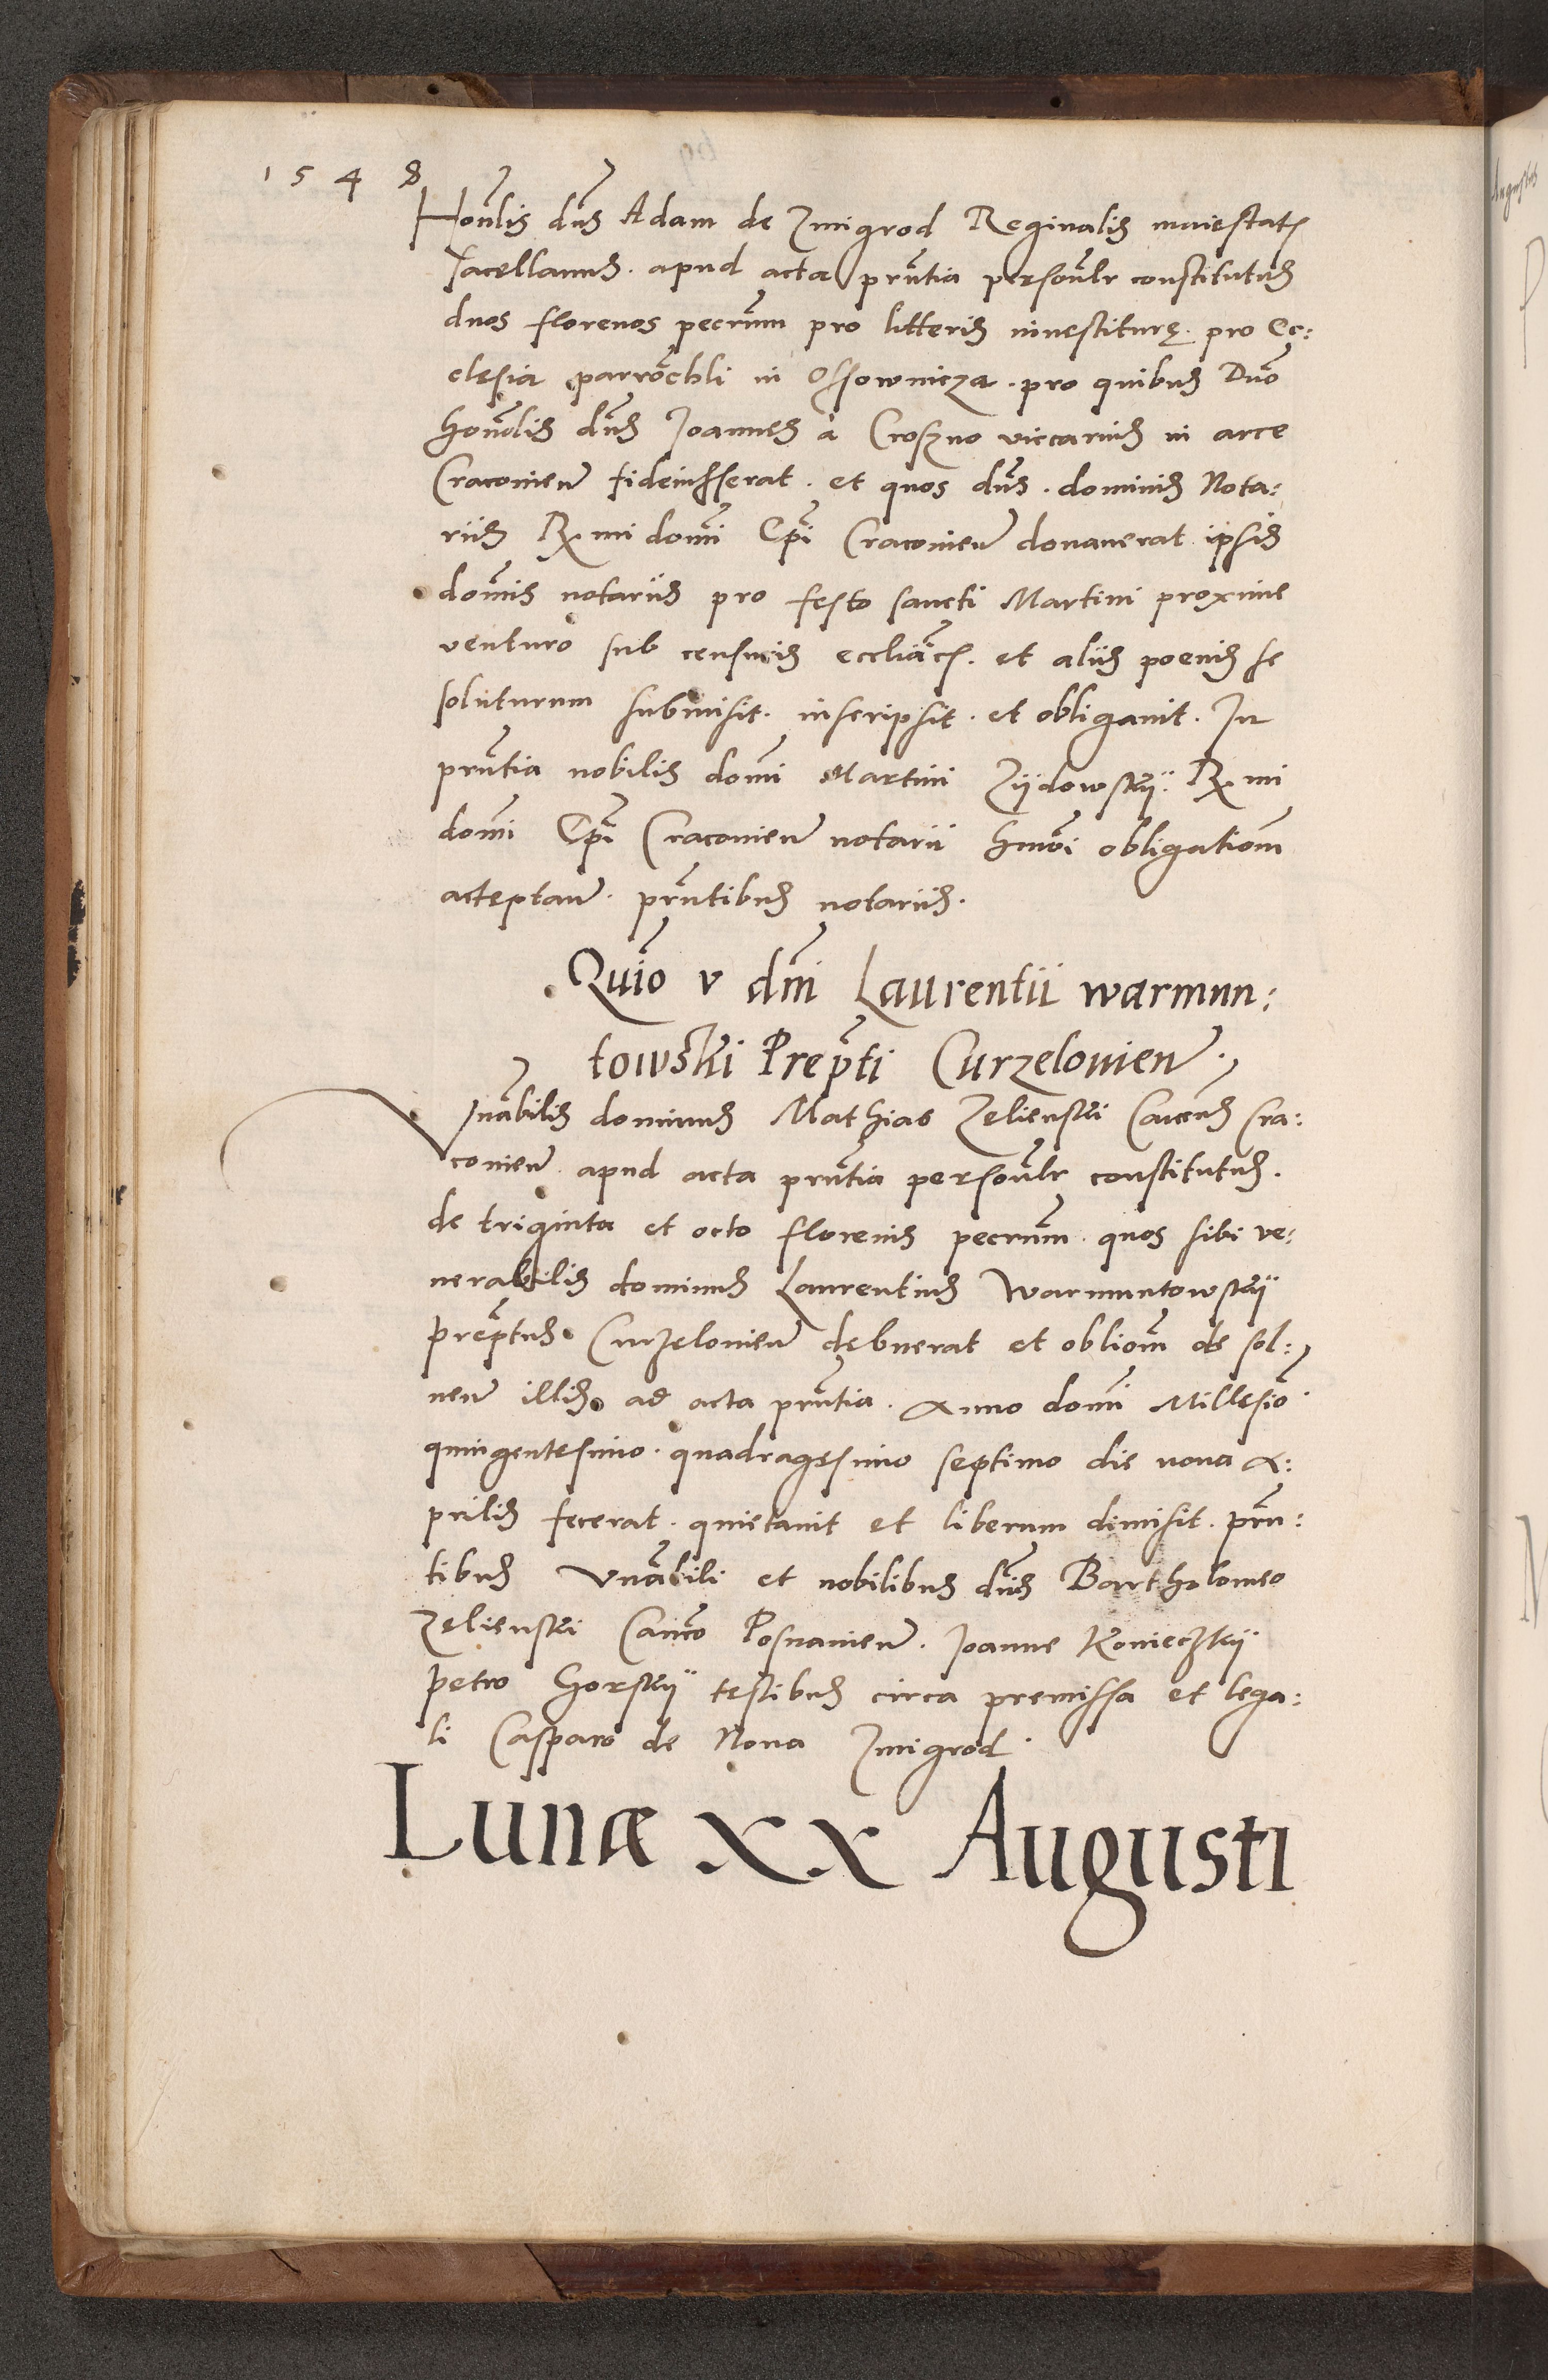 1548
Honlis dns Adam de Zmigrod Reginalis maiestatis
sacellanus. apud acta prntia personlr constitutus
duos florenos pecrum pro litteris investiturę. pro Ec:
clesia parrochli in Ossownicza. pro quibus Dno
honolis dns Joannes à Croszno viccarius in arce
Cracovien fideiusserat. et quos dns. dominis Nota:
riis Rmi domi Epi Cracovien donaverat ipsis
domis notariis pro festo sancti Martini proxime
venturo sub censuris ecclīacis. et aliis poenis se
soluturum submisit. inscripsit. et obligavit. In
prntia nobilis domi Martini Zÿdowskÿ. Rmi
domi Epi Cracovien notarii hmōi obligatiom
acceptan. prntibus notariis.
Quio v dni Laurentii warmun:
towski Prepti Curzelovien.
Vnabilis dominus Mathias Zelienski CanCus Cra:
covien apud acta prntia personlr constitutus.
de triginta et octo florenis pecrum quos sibi ve:
nerabilis dominus Laurentius Warmuntowskÿ
preptus Curzelovien dębuerat et obliom de sol:
uen illis ad acta prntia. Anno domi Millesio
quingentesimo. quadragesimo septimo die nona A:
prilis fecerat. quietavit et liberum dimisit. prn:
tibus Vnabili et nobilibus dnis Bartholomeo
Zelienski Canco Posnanien. Joanne Konieczkÿ
petro Gorskÿ testibus circa premissa et lega:
li Casparo de Nova Zmigrod.
Lunæ XX Augusti
Augustus